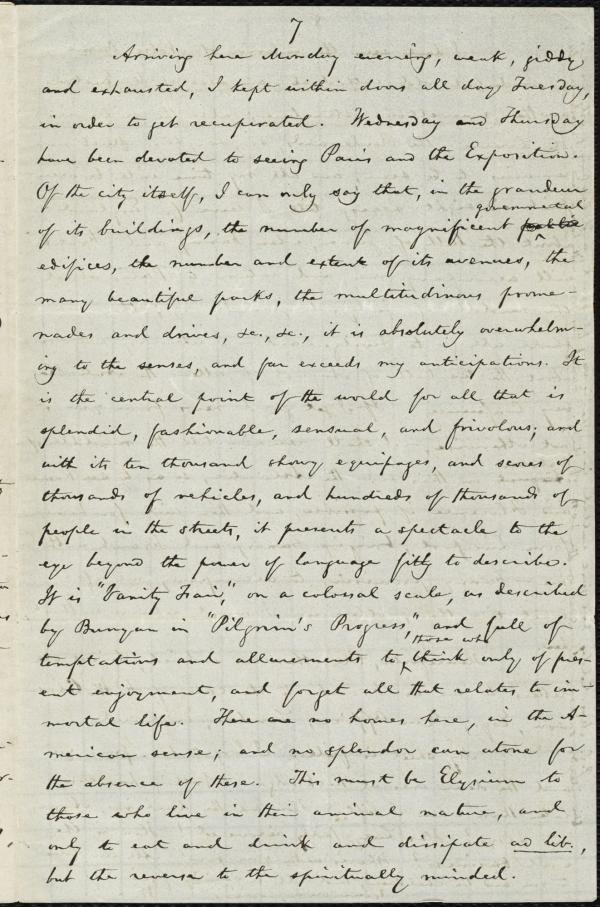 7
Arriving here Monday evening, weak, giddy
and exhausted, I kept within doors all day Tuesday,
in order to get recuperated. Wednesday and Thursday
have been devoted to seeing Paris and the Exposition.
Of the city itself, I can only say that, in the grandeur
governmental
of its buildings, the number of magnificent public
edifices, the number and extent of its avenues, the
many beautiful parks, the multitudinous prome-
nades and drives, &c., &c., it is absolutely overwhelm-
ing to the senses, and far exceeds my anticipations. It
is the central point of the world for all that is
splendid, fashionable, sensual, and frivolous; and
with its ten thousand showy equipages, and scores of
thousands of vehicles, and hundreds of thousands of
people in the streets, it presents a spectacle to the
eye beyond the power of language fitly to describe.
It is "Vanity Fair," on a colossal scale, as described
by Bunyan in "Pilgrim's Progress," and full of
those who
temptations and allurements to think only of pres-
ent enjoyment, and forget all that relates to im-
mortal life. There are no homes here, in the A-
merican sense; and no splendor can atone for
the absence of these. This must be Elysium to
those who live in their animal nature, and
only to eat and drink and dissipate ad lib.,
but the reverse to the spiritually minded.